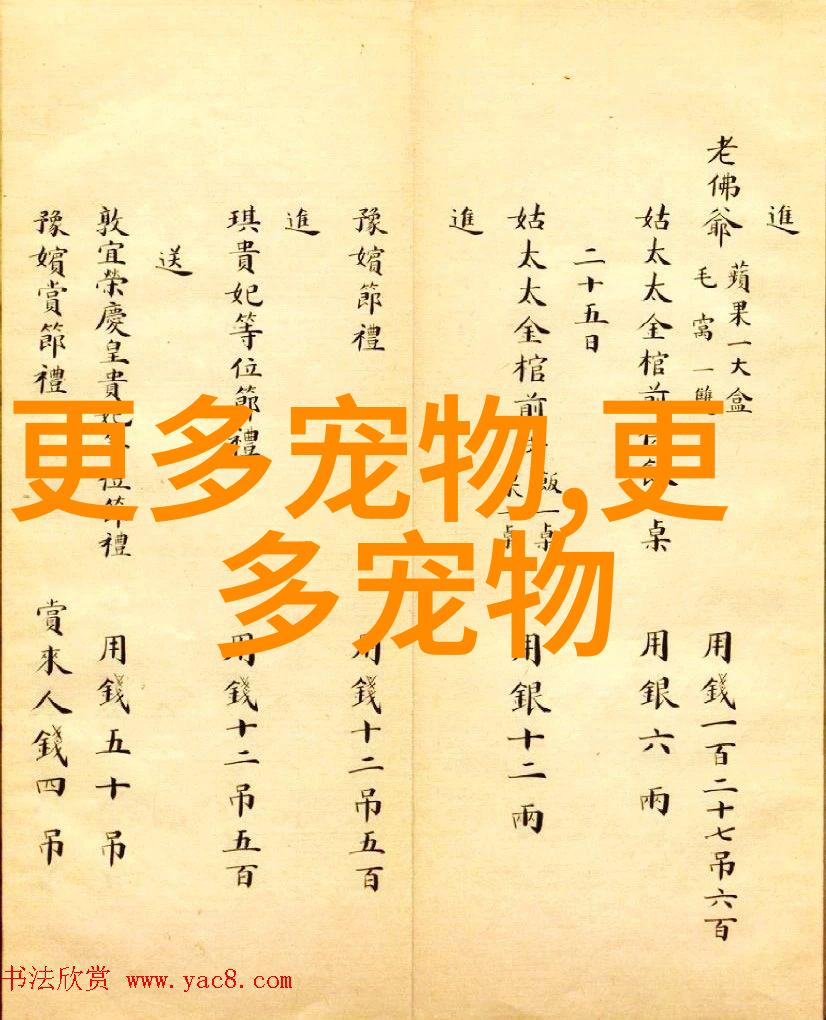 進
老佛爺 蘋果一大盒 毛窩一雙 用錢一百二十七吊六百
姑太太金棺前 桌 用銀六兩
二十五日
姑太太金棺前 飯一桌 果一桌 用銀十二兩
進
豫嬪節禮 用錢十二吊五百
進
琪貴妃等位節禮 用錢十二吊五百
送
敦宜榮慶皇貴妃 位節禮 用錢五十吊
豫嬪賞節禮 賞來人錢四吊
更多宠物,更
多宠物
书法欣赏 www.yac8.com